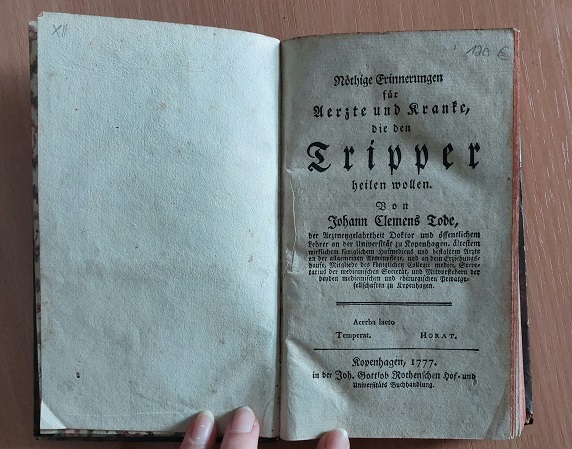 XII
120 €
Nöthige Erinnerungen
für
Aerzte und Kranke,
die den
Tripper
heilen wollen.
Von
Johann Clemens Tode,
der Arzneygelahrtheit Doktor und öffentlichem
Lehrer an der Universität zu Kopenhagen, ältestem
wirklichem königlichem Hofmedicus und bestaltem Arzte
an der allgemeinen Armenpflege, und an dem Erziehungs-
hause, Mitgliede des königlichen Collegii medici, Secre-
tarius der medicinischen Societät, und Mitvorstehern der
beyden medicinischen und chirurgischen Privatge-
sellschaften zu Kopenhagen.
Acerba laeto
Temperat. HORAT.
Kopenhagen, 1777.
in der Joh. Gottlob Rothenschen Hof- und
Universitäts Buchhandlung.